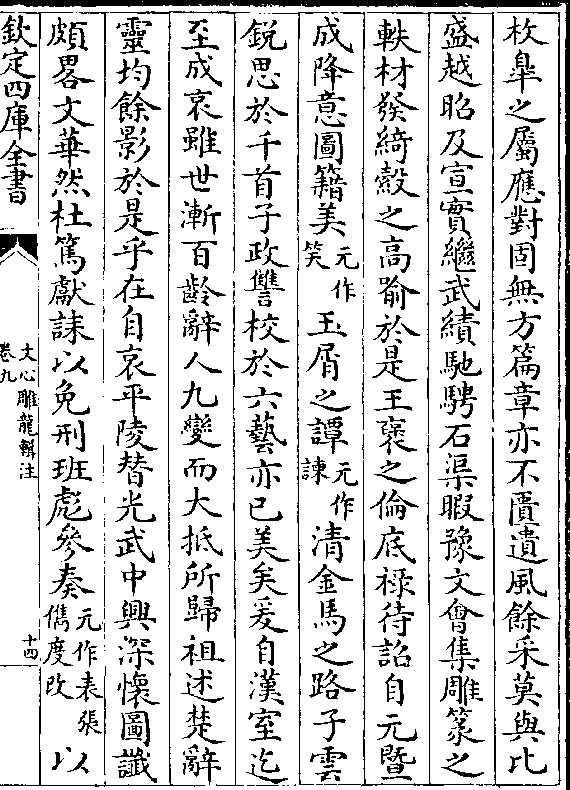 枚臯之屬應對固無方篇章亦不匱遺風餘采莫與比
盛越昭及宣實繼武績馳騁石渠暇豫文會集雕篆之
軼材發綺縠之高喻於是王褒之倫底禄待詔自元暨
成降意圖籍美元作笑玉屑之譚元作諫清金馬之路子雲
鋭思於千首子政讐校於六藝亦已美矣爰自漢室迄
至成哀雖世漸百齡辭人九變而大抵所歸祖述楚辭
靈均餘影於是乎在自哀平陵替光武中興深懷圖讖
頗畧文華然杜篤獻誄以免刑班彪參奏元作表張儁度改以
欽定四庫全書
文心雕龍輯注
卷九
十四